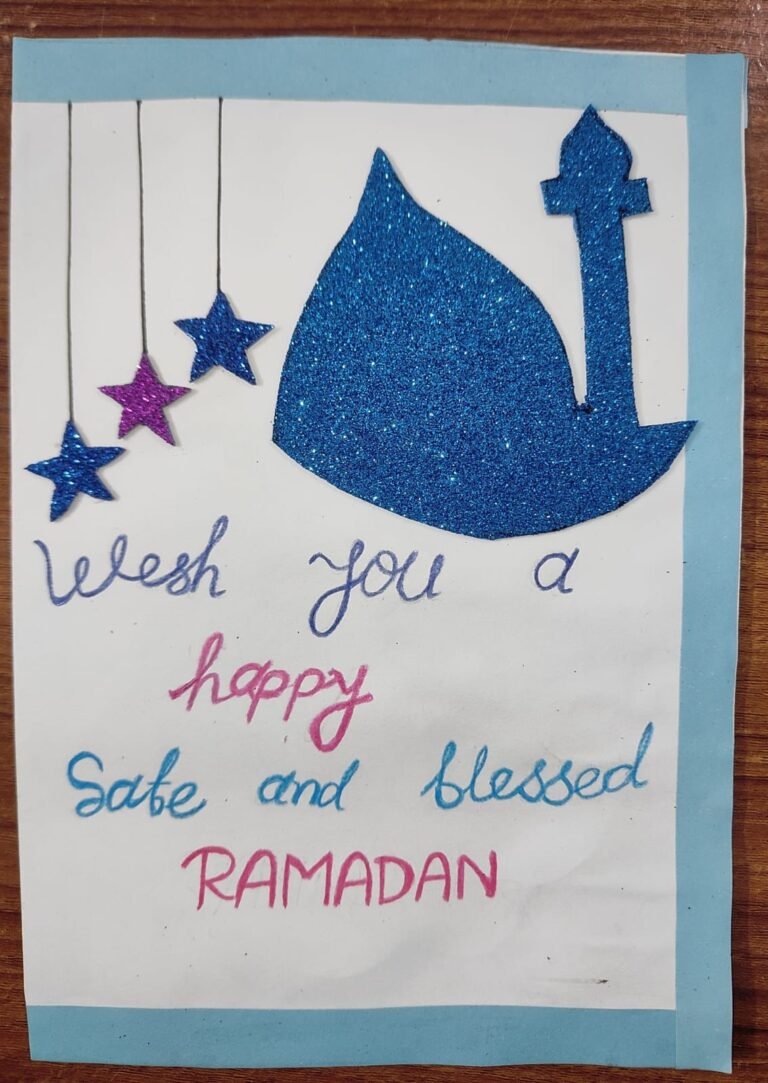 Wish you a
happy
Safe and blessed
RAMADAN